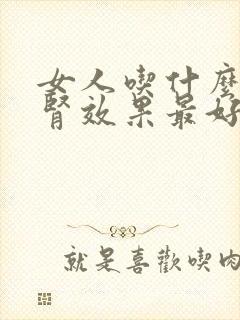 女人喫什麼
腎效果最好
就是喜歡喫肉